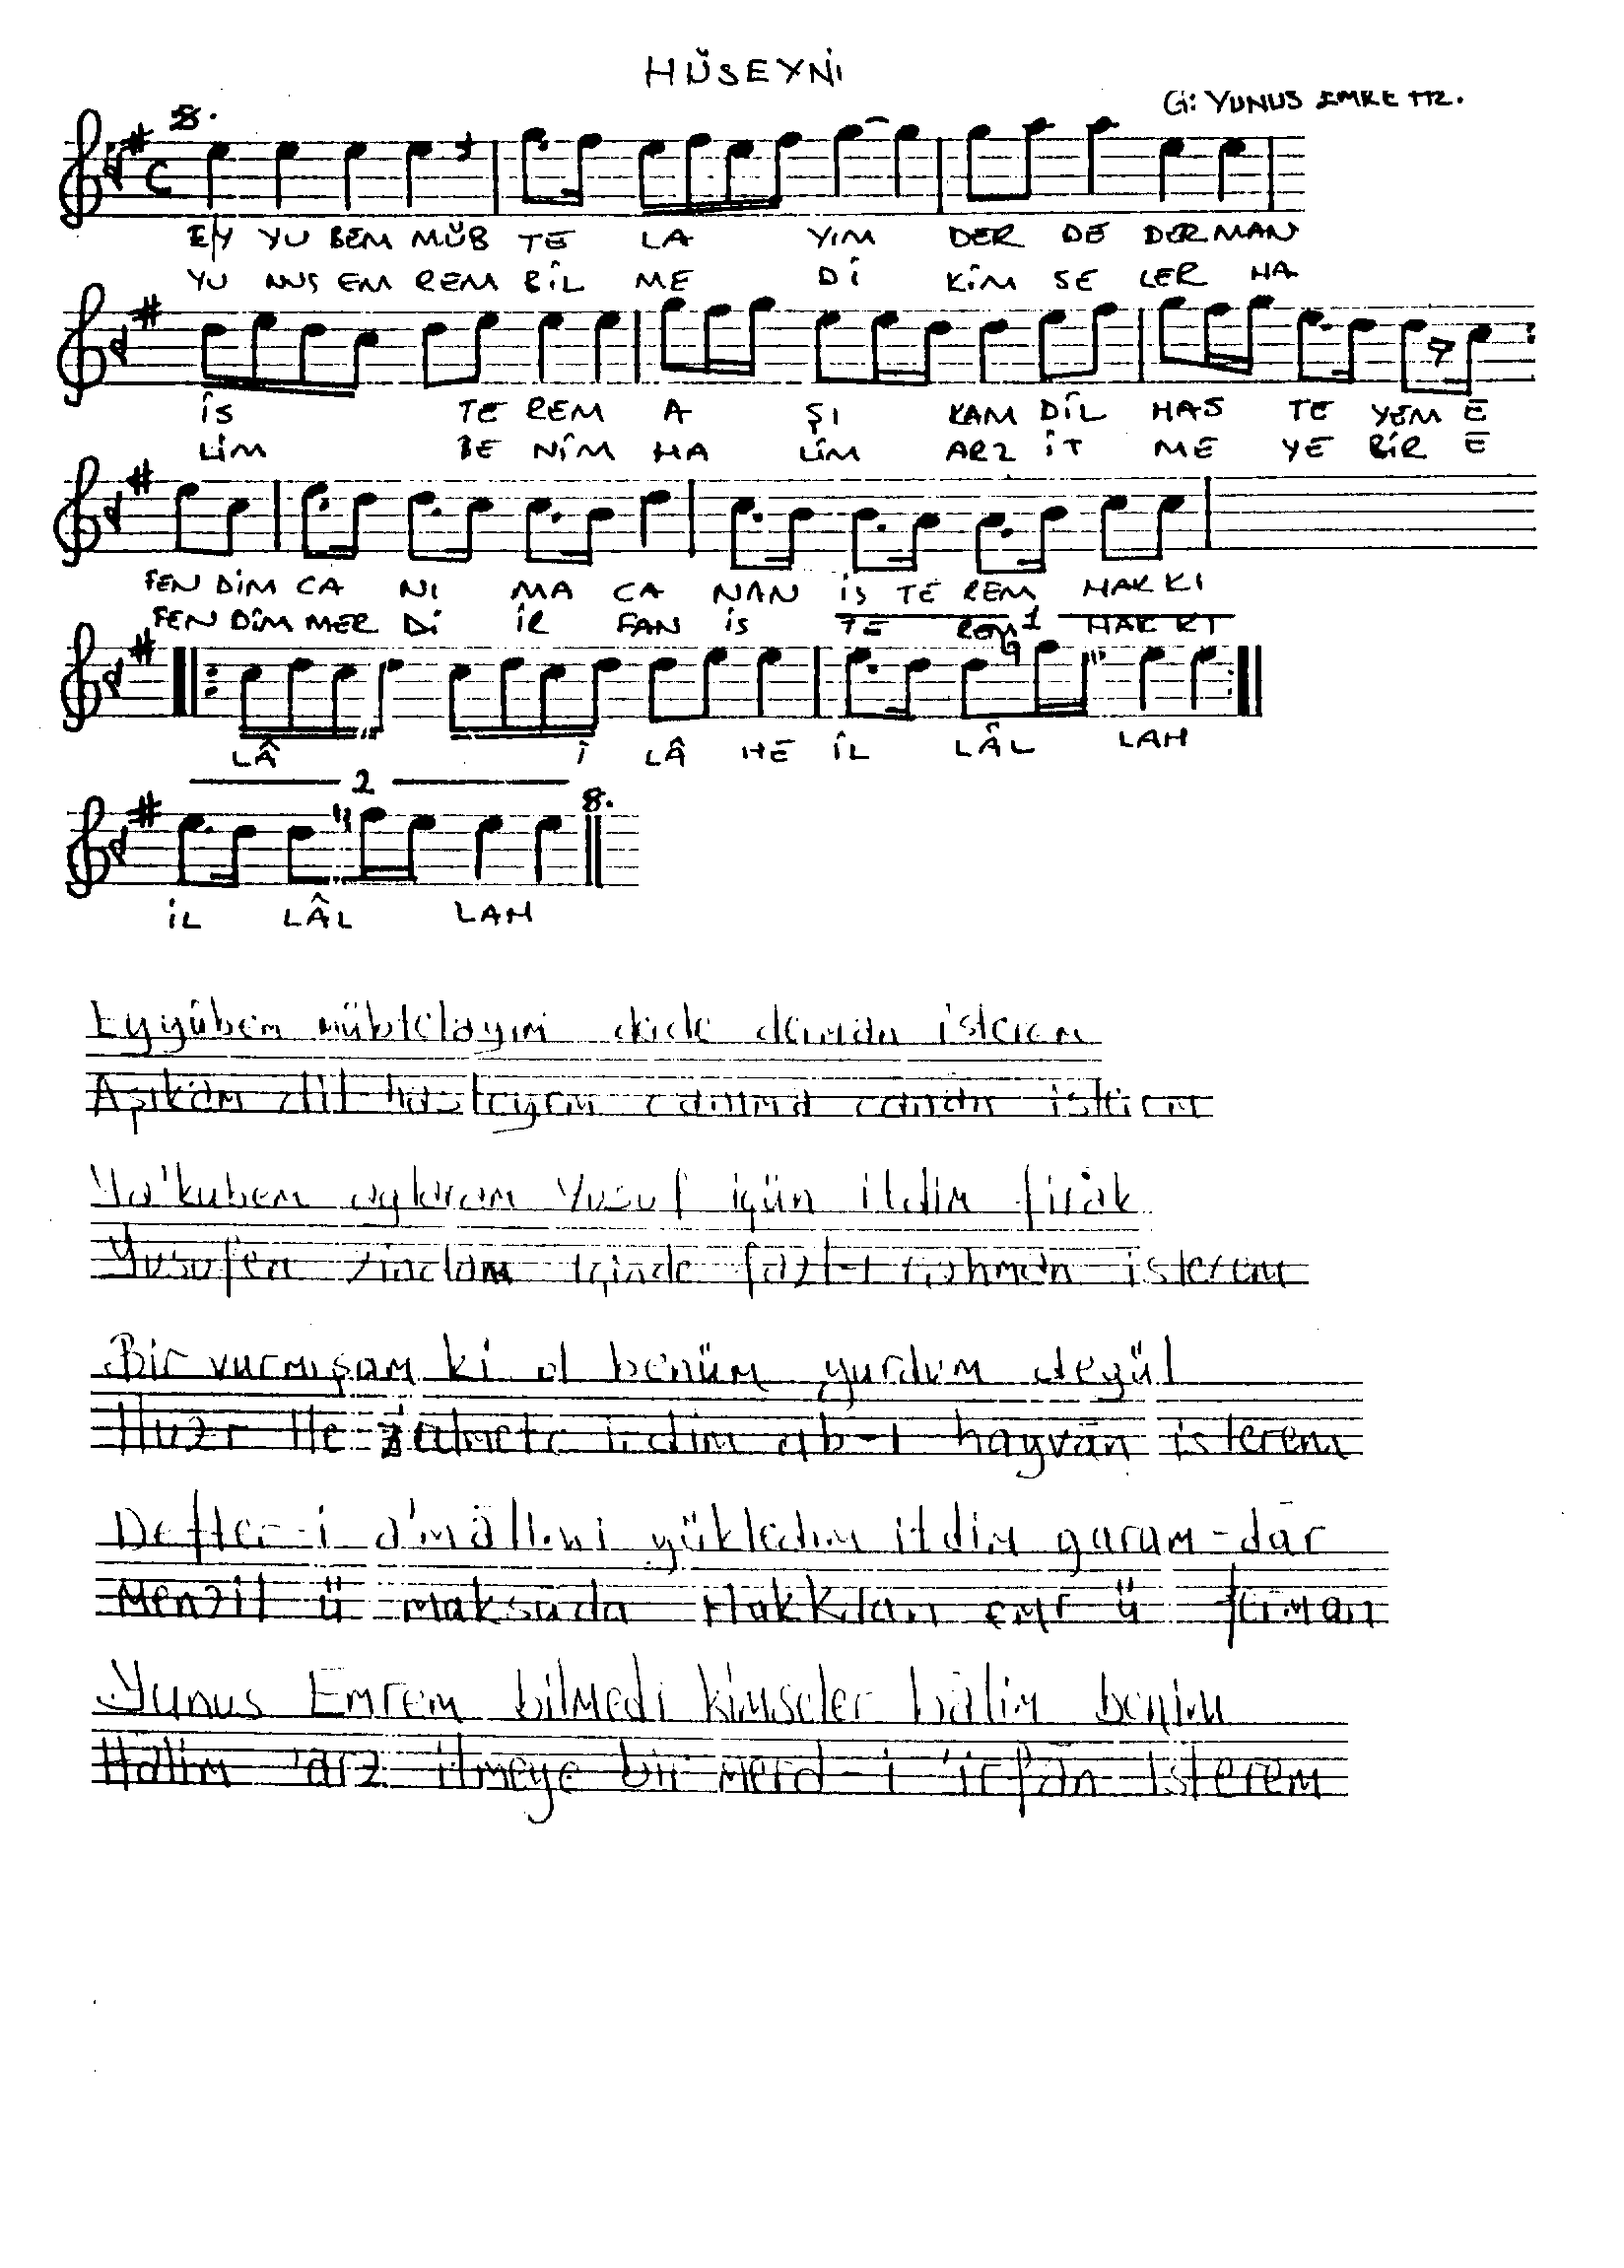 HÜSEYNİ
G: YUNUS EMRE HZ.
C
EY YU BEM MÜB TE LA YIM DER DE DERMAN
YU NUS EM REM BİL ME Dİ KİM SE LER HA
İS TE REM A ŞI KAM DİL HAS TE YEM E
LİM BE NİM HA LİM ARZ İT ME YE BİR E
FEN DİM CA NI MA CA NAN İS TE REM HAK KI
FEN DİM MER Dİ İR FAN İS TE REM HAK KI
1
LÂ İ LÂ HE İL LÂL LAH
2
İL LÂL LAH
Eyyûbem mübtelayım derde derman isterem
Aşıkam dil hasteyem canıma canan isterem
Ya'kubem aglaram Yusuf içün itdim firâk
Yusufem zindam içinde fazl-ı rahman isterem
Bir vurmışam ki ol benüm yurdum degül
Hızr ile irdim ab-ı hayvān isterem
Defter-i a'mālimi yükledim itdim
Menzil ü maksuda Hakkdan emr ü ferman
Yunus Emrem bilmedi kimseler hālim benim
Hālim 'arz itmeye bir merd-i 'irfān isterem